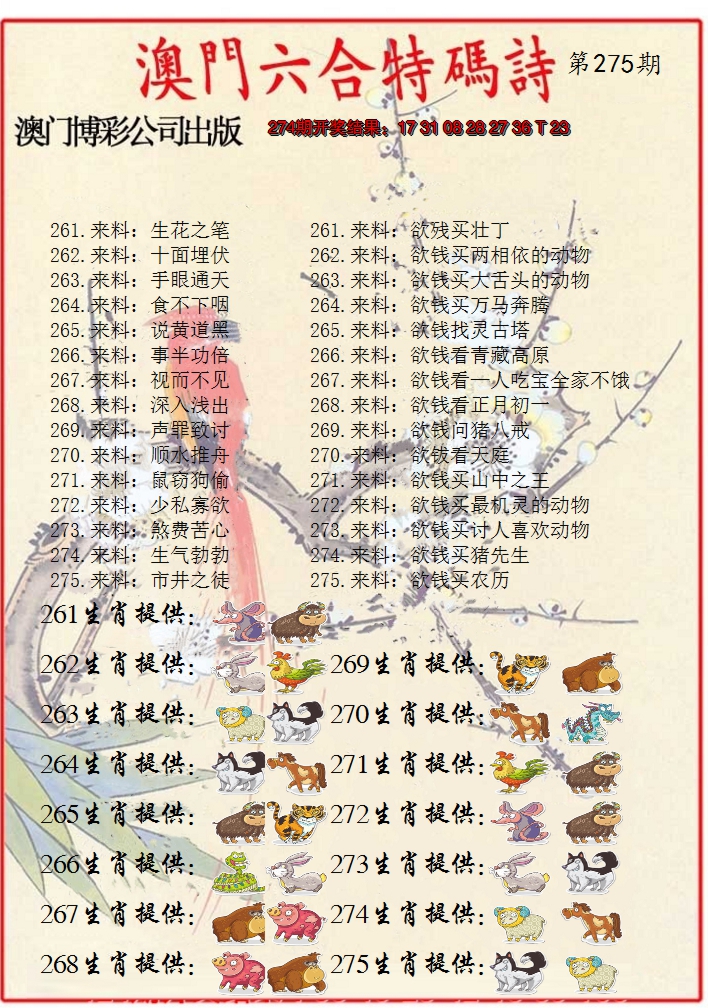 澳門六合特碼詩 第275期
澳门博彩公司出版 274期开奖结果：17 31 08 28 27 36 T 23
261.来料：生花之笔 261.来料：欲残买壮丁
262.来料：十面埋伏 262.来料：欲钱买两相依的动物
263.来料：手眼通天 263.来料：欲钱买大舌头的动物
264.来料：食不下咽 264.来料：欲钱买万马奔腾
265.来料：说黄道黑 265.来料：欲钱找灵古塔
266.来料：事半功倍 266.来料：欲钱看青藏高原
267.来料：视而不见 267.来料：欲钱看一人吃宝全家不饿
268.来料：深入浅出 268.来料：欲钱看正月初一
269.来料：声罪致讨 269.来料：欲钱问猪八戒
270.来料：顺水推舟 270.来料：欲钹看天庭
271.来料：鼠窃狗偷 271.来料：欲钱买山中之王
272.来料：少私寡欲 272.来料：欲钱买最机灵的动物
273.来料：煞费苦心 273.来料：欲钱买讨人喜欢动物
274.来料：生气勃勃 274.来料：欲钱买猪先生
275.来料：市井之徒 275.来料：欲钱买农历
261生肖提供：
262生肖提供： 269生肖提供：
263生肖提供： 270生肖提供：
264生肖提供： 271生肖提供：
265生肖提供： 272生肖提供：
266生肖提供： 273生肖提供：
267生肖提供： 274生肖提供：
268生肖提供： 275生肖提供：